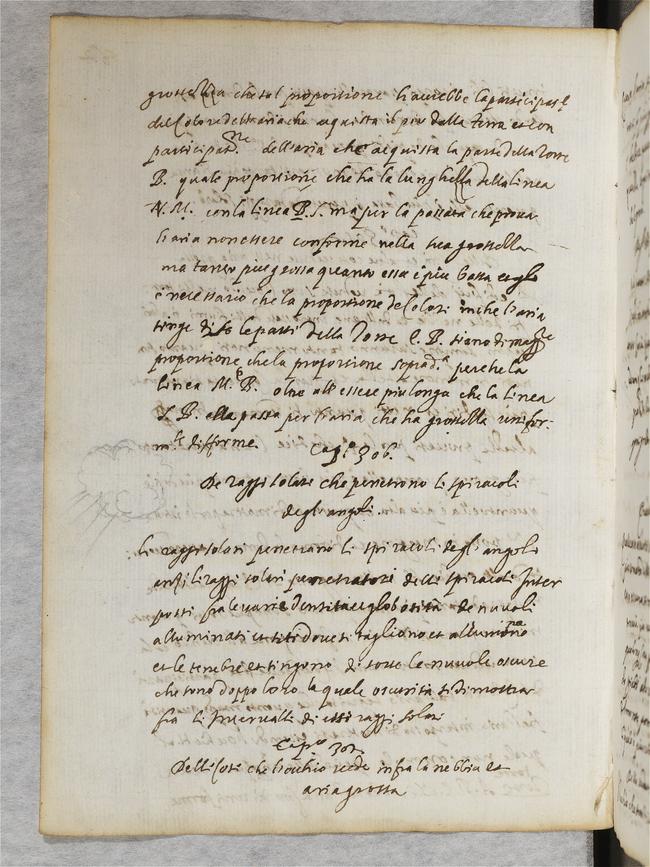 grossezza che tal proportione haurebbe la participat.e
del Colore dell'aria che acquista il piu dalla terra et con
participat.ne dell'aria che acquista la parte della Torre
B. quale proportione che ha la lunghezza della linea
N. M. con la linea B. S. ma per la passata che prova
l'aria non essere conforme nella sua grossezza
ma tanto piu grossa quanto essa é piu bassa egl
é necessario che la proportione de Colori in che l'aria
tinge di se le parti della Torre C. B. siano di magg.re
proportione che la proportione soprad.a perche la
linea M. B. oltre all'essere piu longa che la linea
S. B. ella passa per l'aria che ha grossezza unifor:
m.te difforme.
Cap.o 306.
De raggi solari che penetrono li spiracoli
degl'angoli.
Li raggi solari penetrano li spiracoli degl'angoli
anzi li raggi solari penetratori delli spiracoli Inter
posti fra le varie densità et globosità de nuvoli
alluminati et siti dove si tagliano et allumi
et le tenebre et tingono di sorte le nuvole oscure
che sono doppo loro la quale oscurità si dimostra
fra li Intervalli di essi raggi solari
Cap.o 307.
Delli cose che l'occhio vede infra la nebbia et
aria grossa